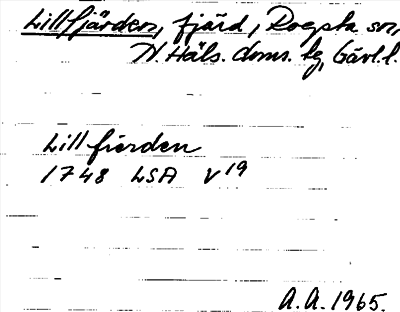 Lillfjärden, fjärd, Rogsta sn,
N. Häls. doms. tg, Gävl. l.
Lillfierden
1748 LSA V19
A.A. 1965.